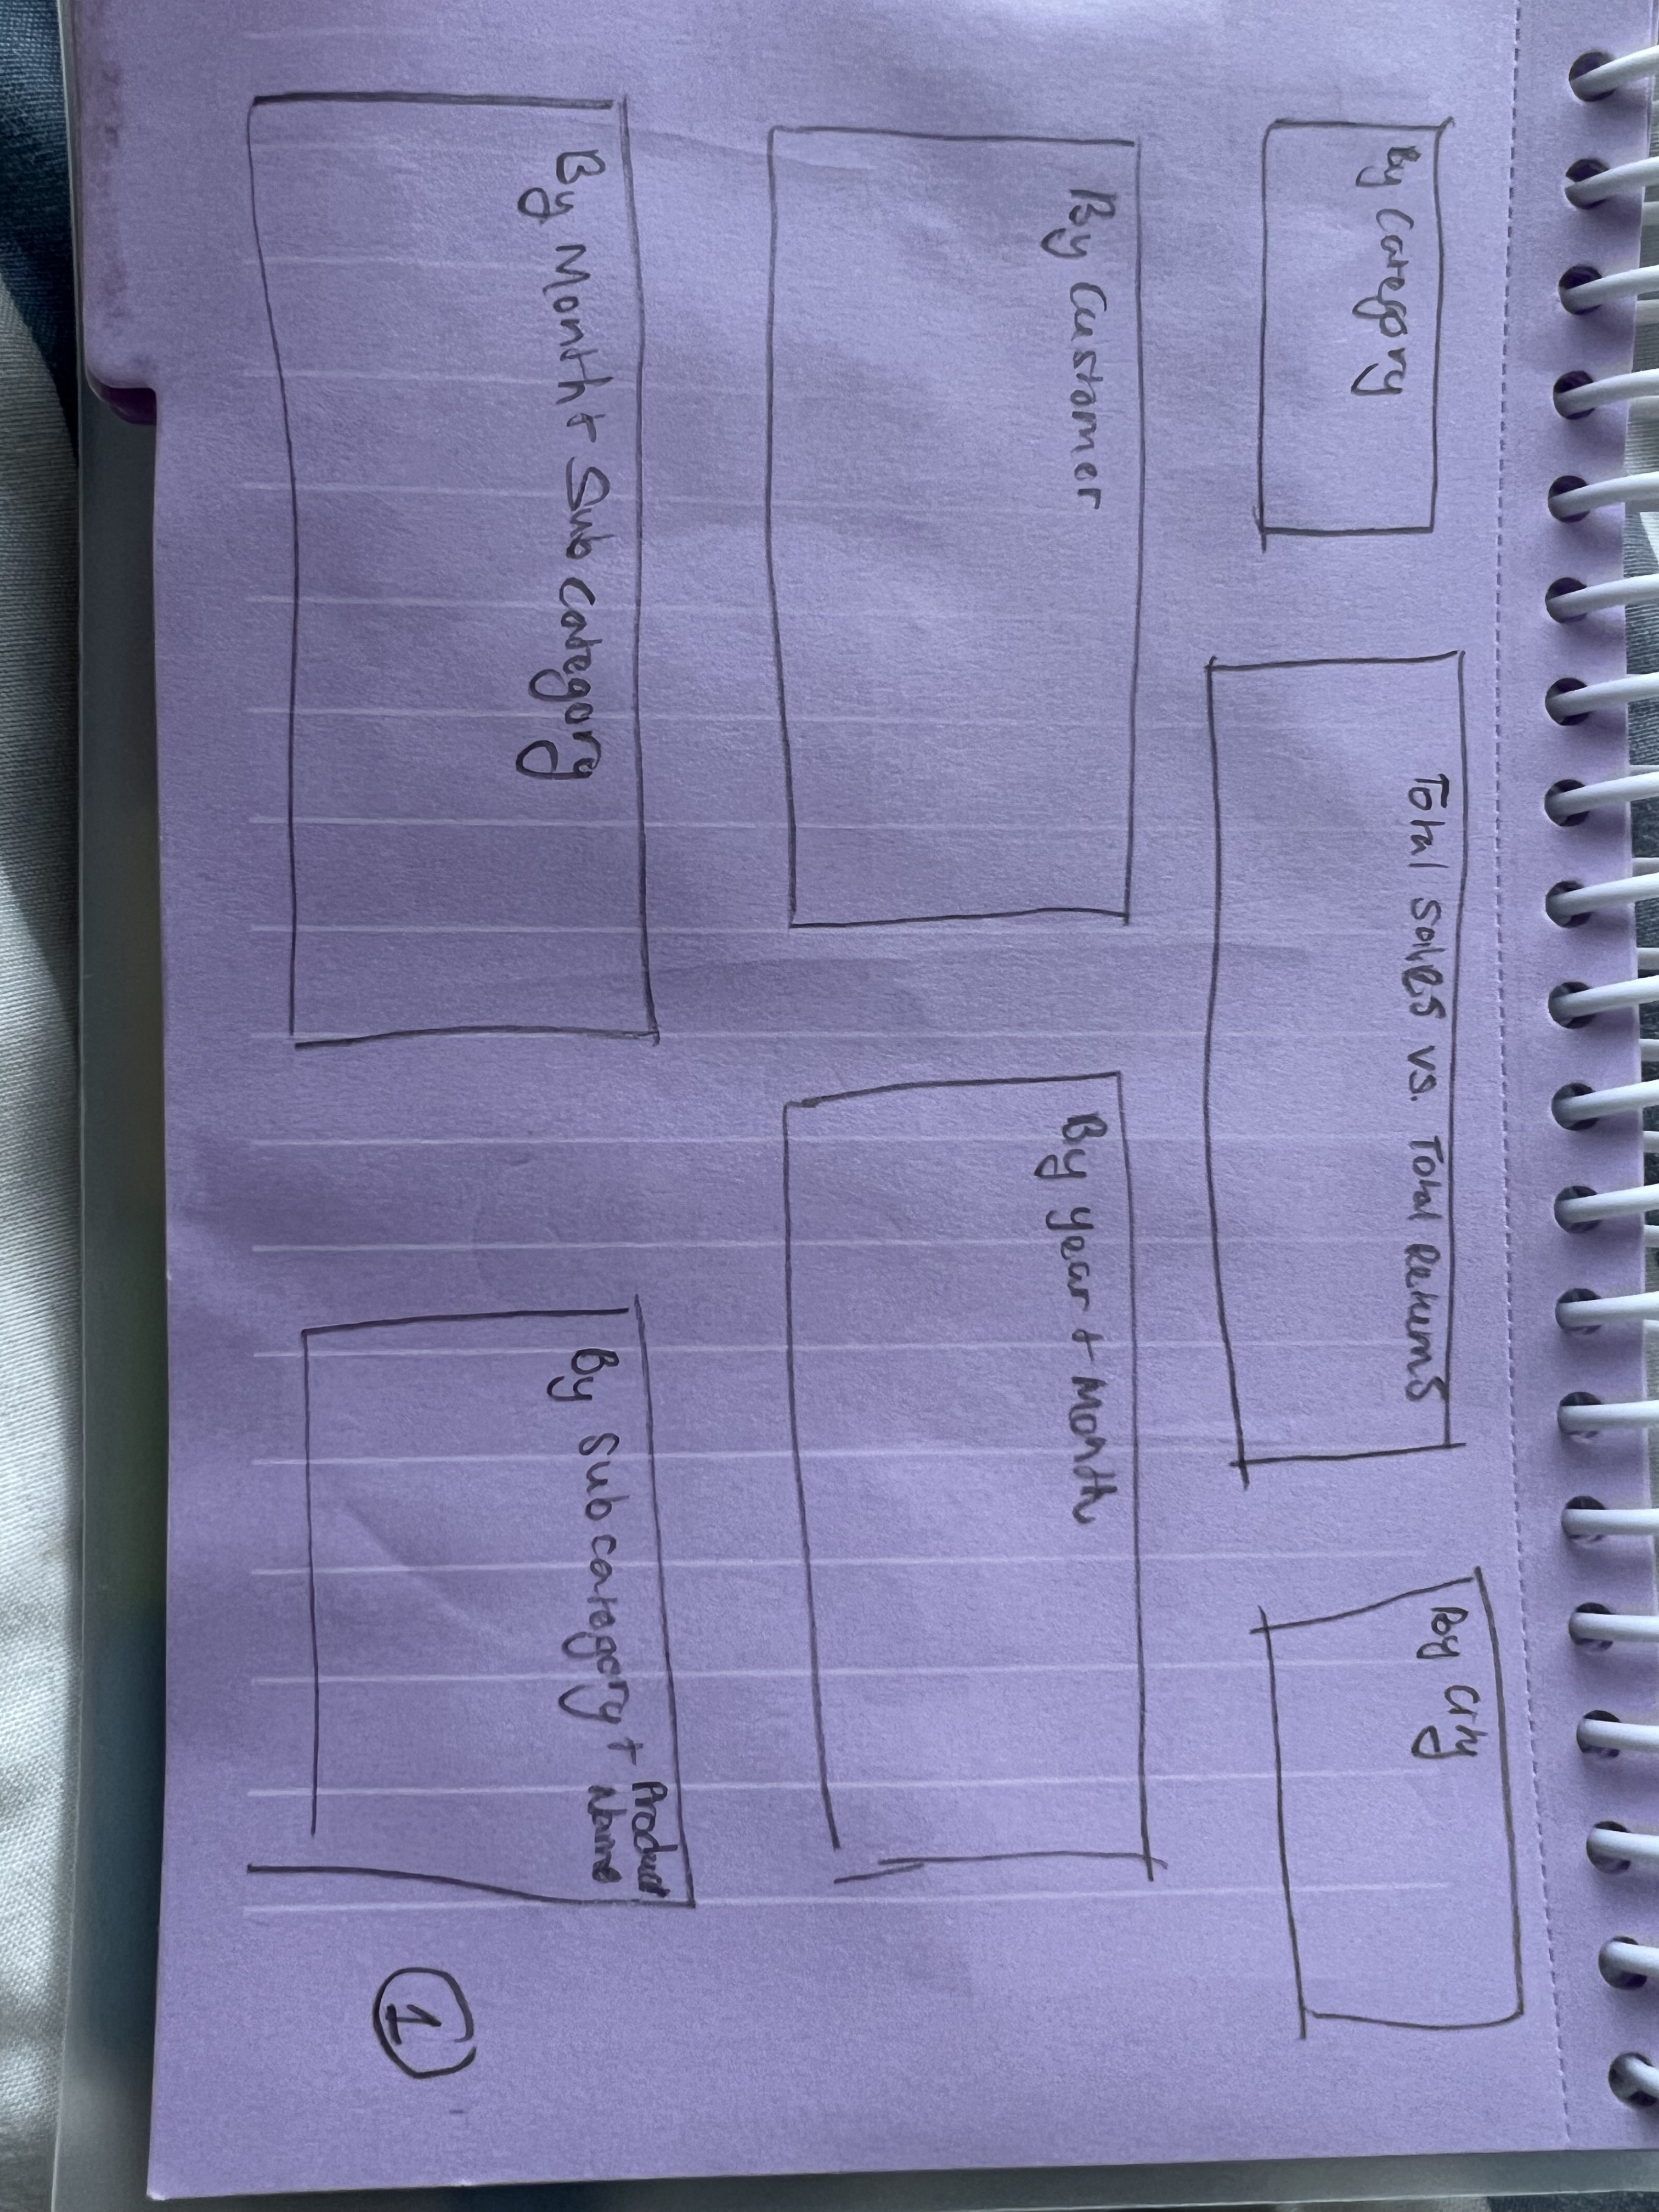 By Category
Total Sales vs. Total Returns
By City
By Customer
By year + Month
By Month + Sub category
By Sub category + Product
Name
1